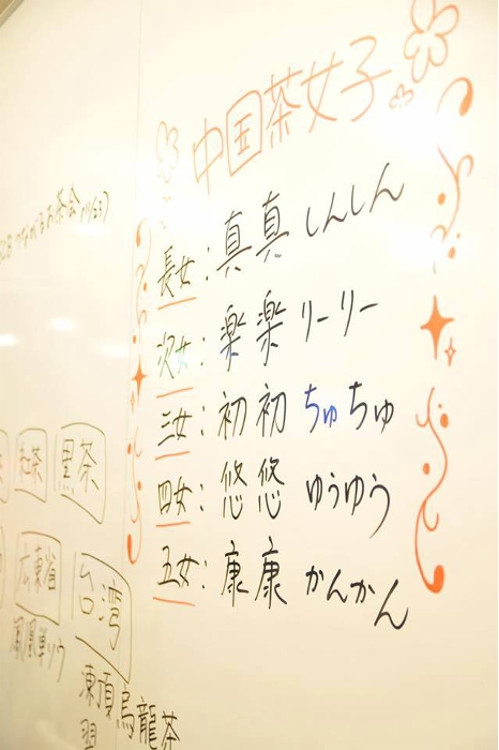 中国茶女子
長女：真真 しんしん
次女：楽楽 リーリー
三女：初初 ちゅちゅ
四女：悠悠 ゆうゆう
五女：康康 かんかん
つながるお茶会
紅茶
黒茶
広東省
台湾
鳳凰単ソウ
凍頂烏龍茶
翠